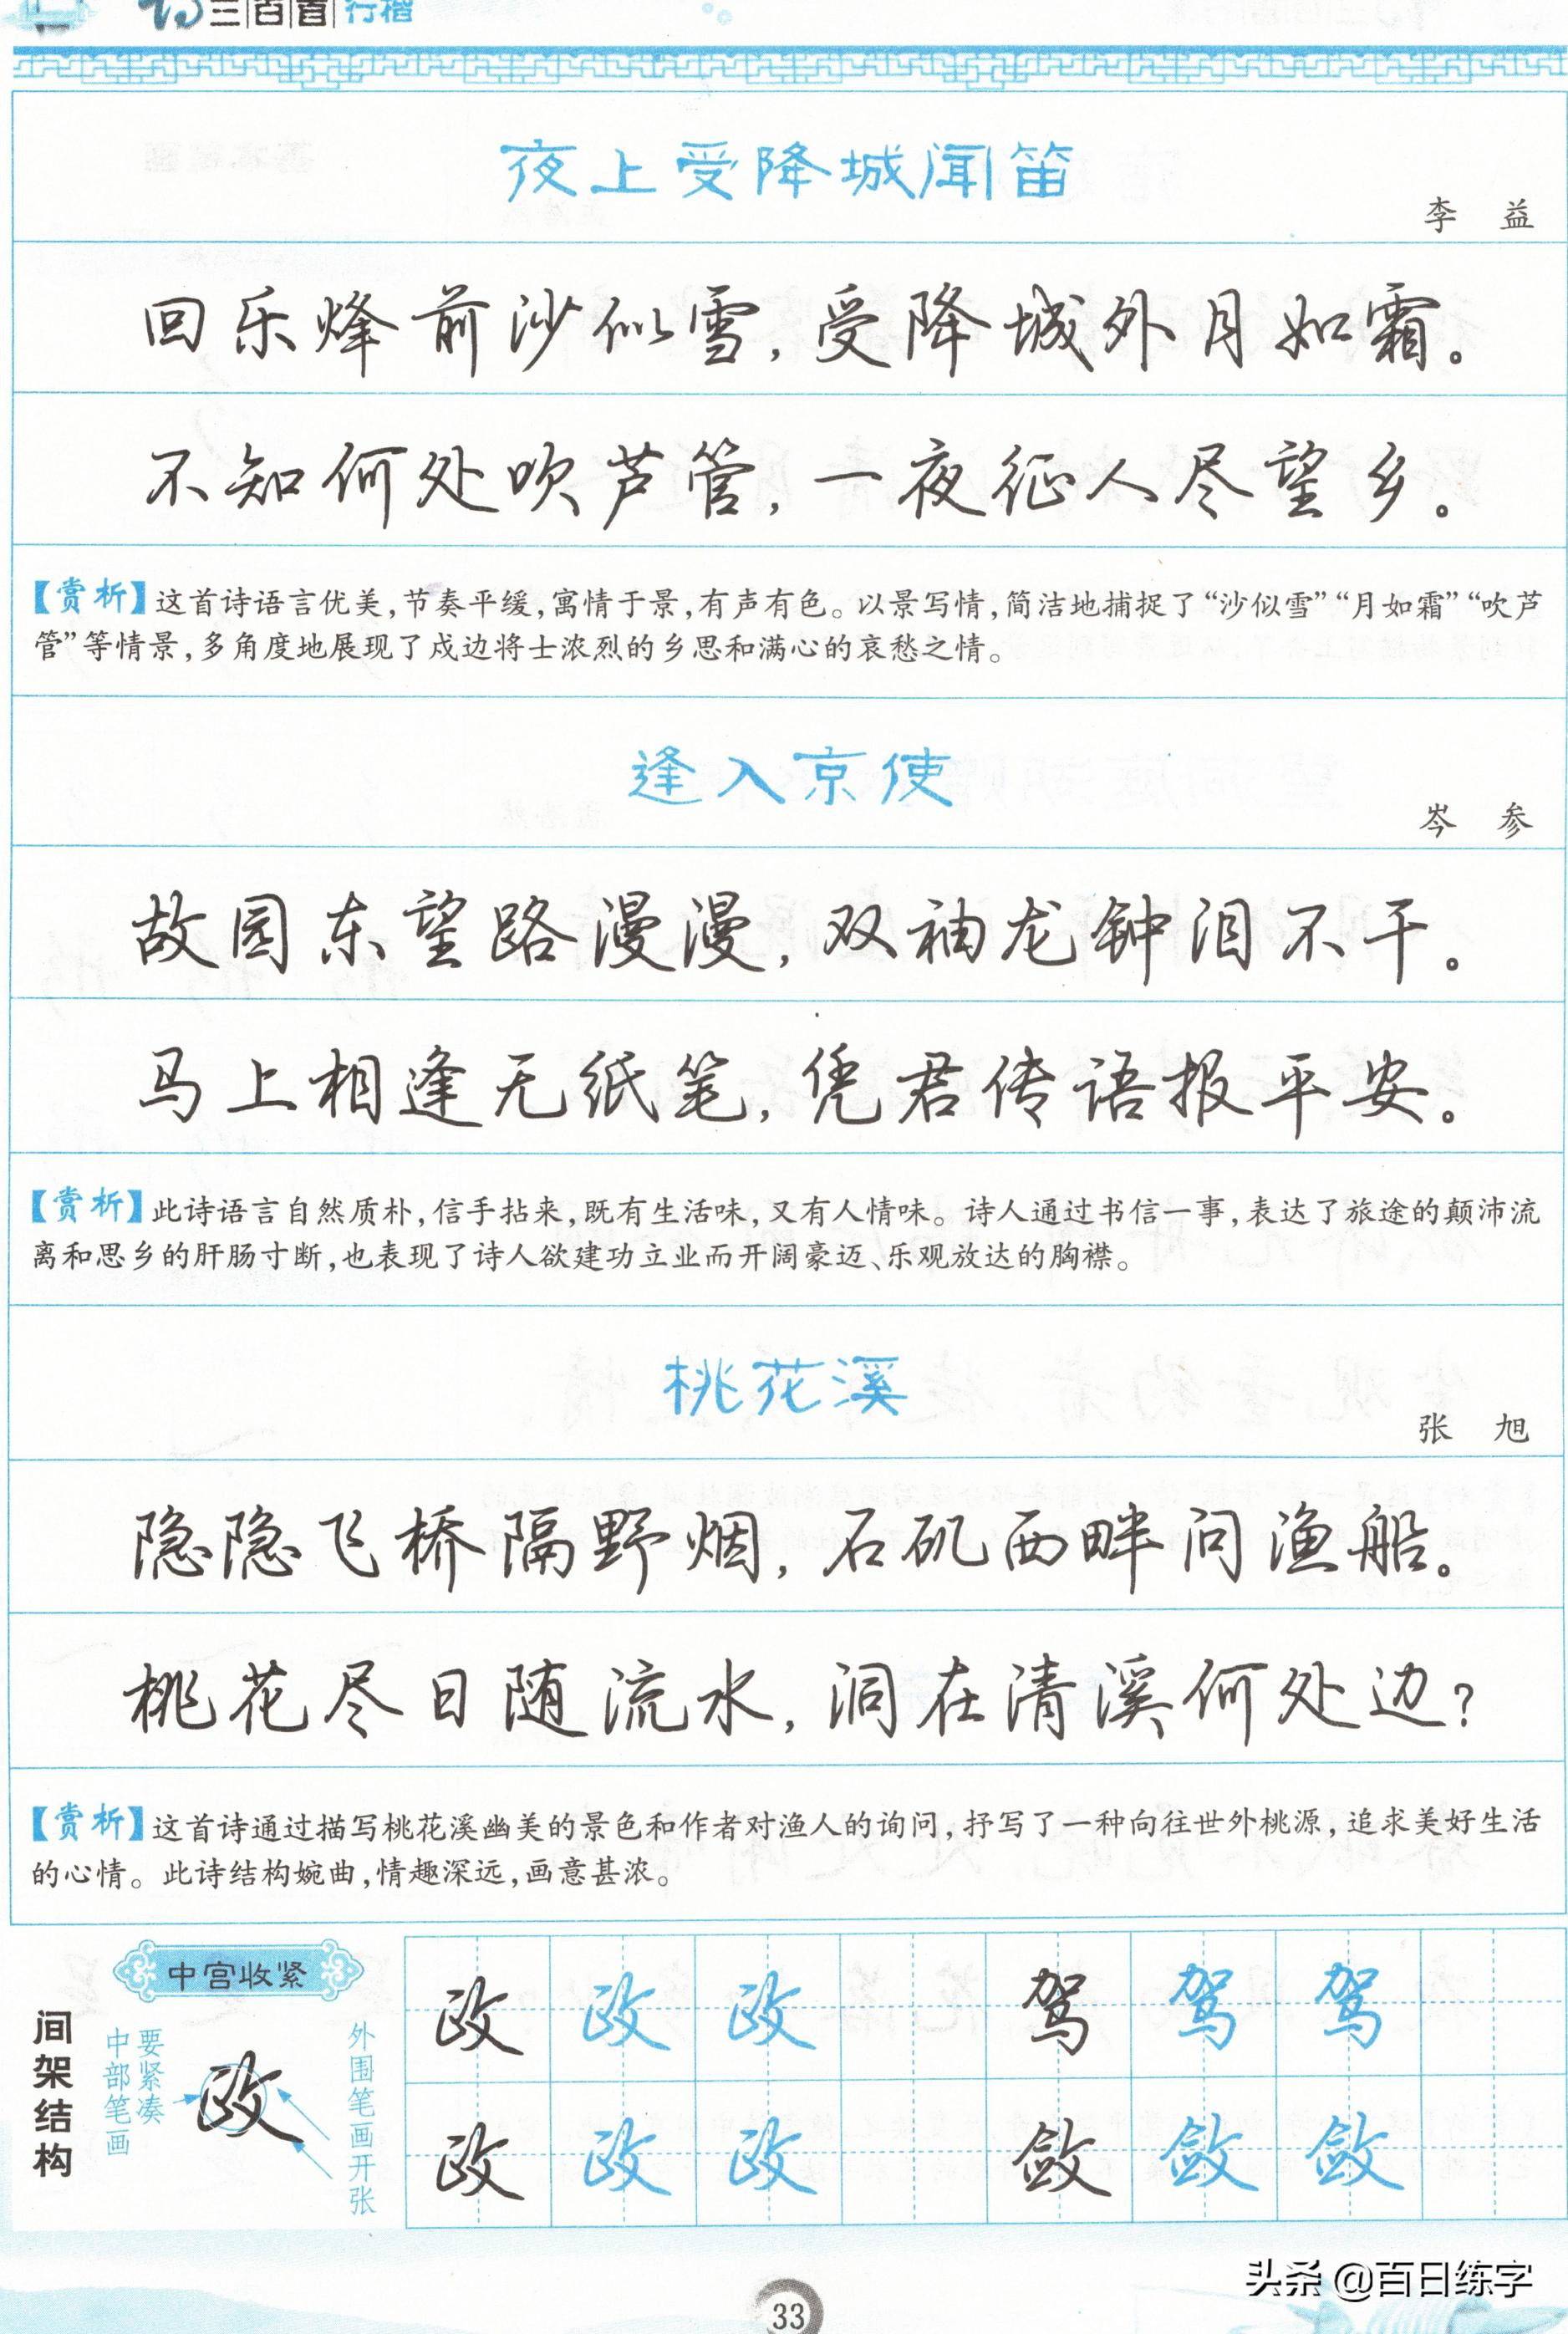 诗三百首 行楷
夜上受降城闻笛
李 益
回乐烽前沙似雪，受降城外月如霜。
不知何处吹芦管，一夜征人尽望乡。
【赏析】这首诗语言优美，节奏平缓，寓情于景，有声有色。以景写情，简洁地捕捉了“沙似雪”“月如霜”“吹芦
管”等情景，多角度地展现了戍边将士浓烈的乡思和满心的哀愁之情。
逢入京使
岑 参
故园东望路漫漫，双袖龙钟泪不干。
马上相逢无纸笔，凭君传语报平安。
【赏析】此诗语言自然质朴，信手拈来，既有生活味，又有人情味。诗人通过书信一事，表达了旅途的颠沛流
离和思乡的肝肠寸断，也表现了诗人欲建功立业而开阔豪迈、乐观放达的胸襟。
桃花溪
张 旭
隐隐飞桥隔野烟，石矶西畔问渔船。
桃花尽日随流水，洞在清溪何处边？
【赏析】这首诗通过描写桃花溪幽美的景色和作者对渔人的询问，抒写了一种向往世外桃源，追求美好生活
的心情。此诗结构婉曲，情趣深远，画意甚浓。
间架结构
中宫收紧
中部笔画
要紧凑
政
外围笔画开张
政 政 政 驾 驾 驾
政 政 政 敛 敛 敛
头条 @百日练字
33